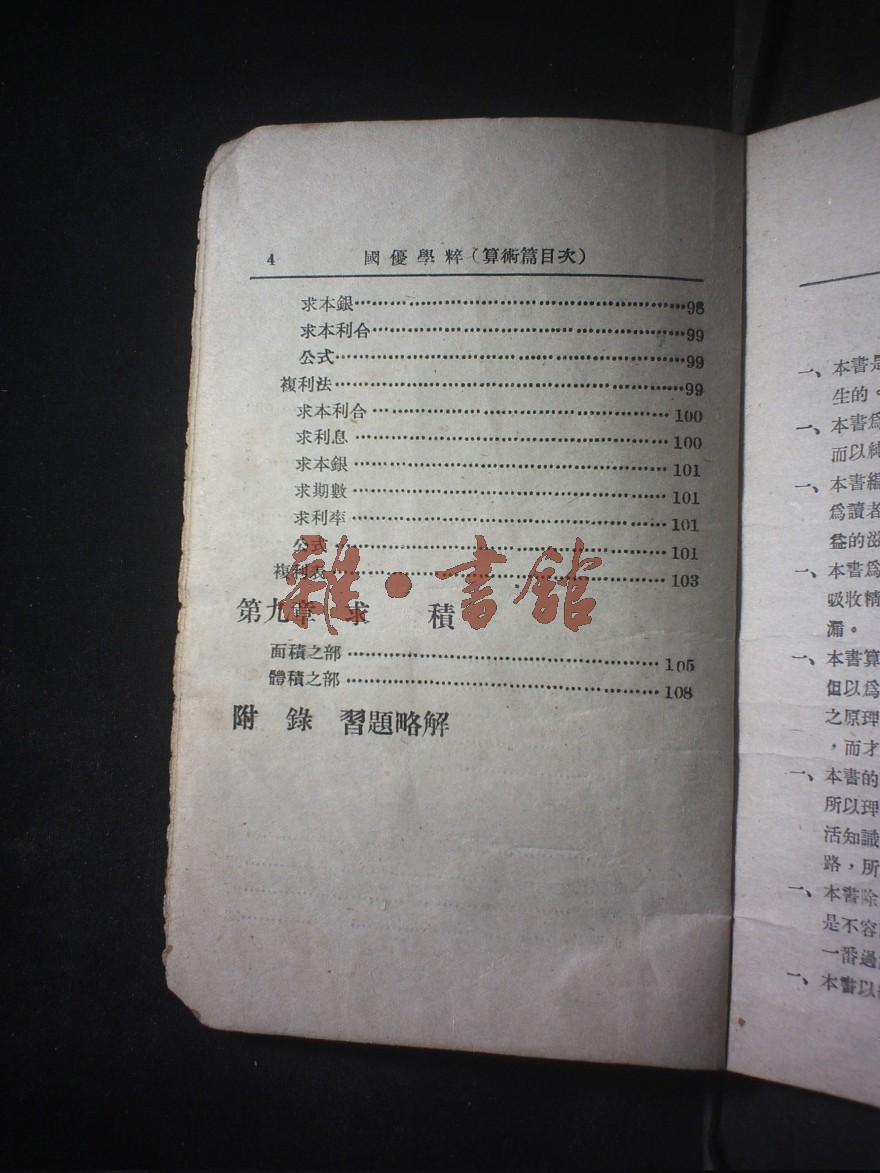 4 國優學粹（算術篇目次）
求本銀……98
求本利合……99
公式……99
複利法……99
求本利合……100
求利息……100
求本銀……101
求期數……101
求利率……101
公式……101
複利表……103
第九章 求 積
面積之部……105
體積之部……108
附 錄 習題略解
雜·書館
一、本書是
生的。
一、本書爲
而以純
一、本書編
爲讀者
益的滋
一、本書爲
吸收精
漏。
一、本書算
但以爲
之原理
，而才
一、本書的
所以理
活知識
路，所
一、本書除
是不容
一番過
一、本書以